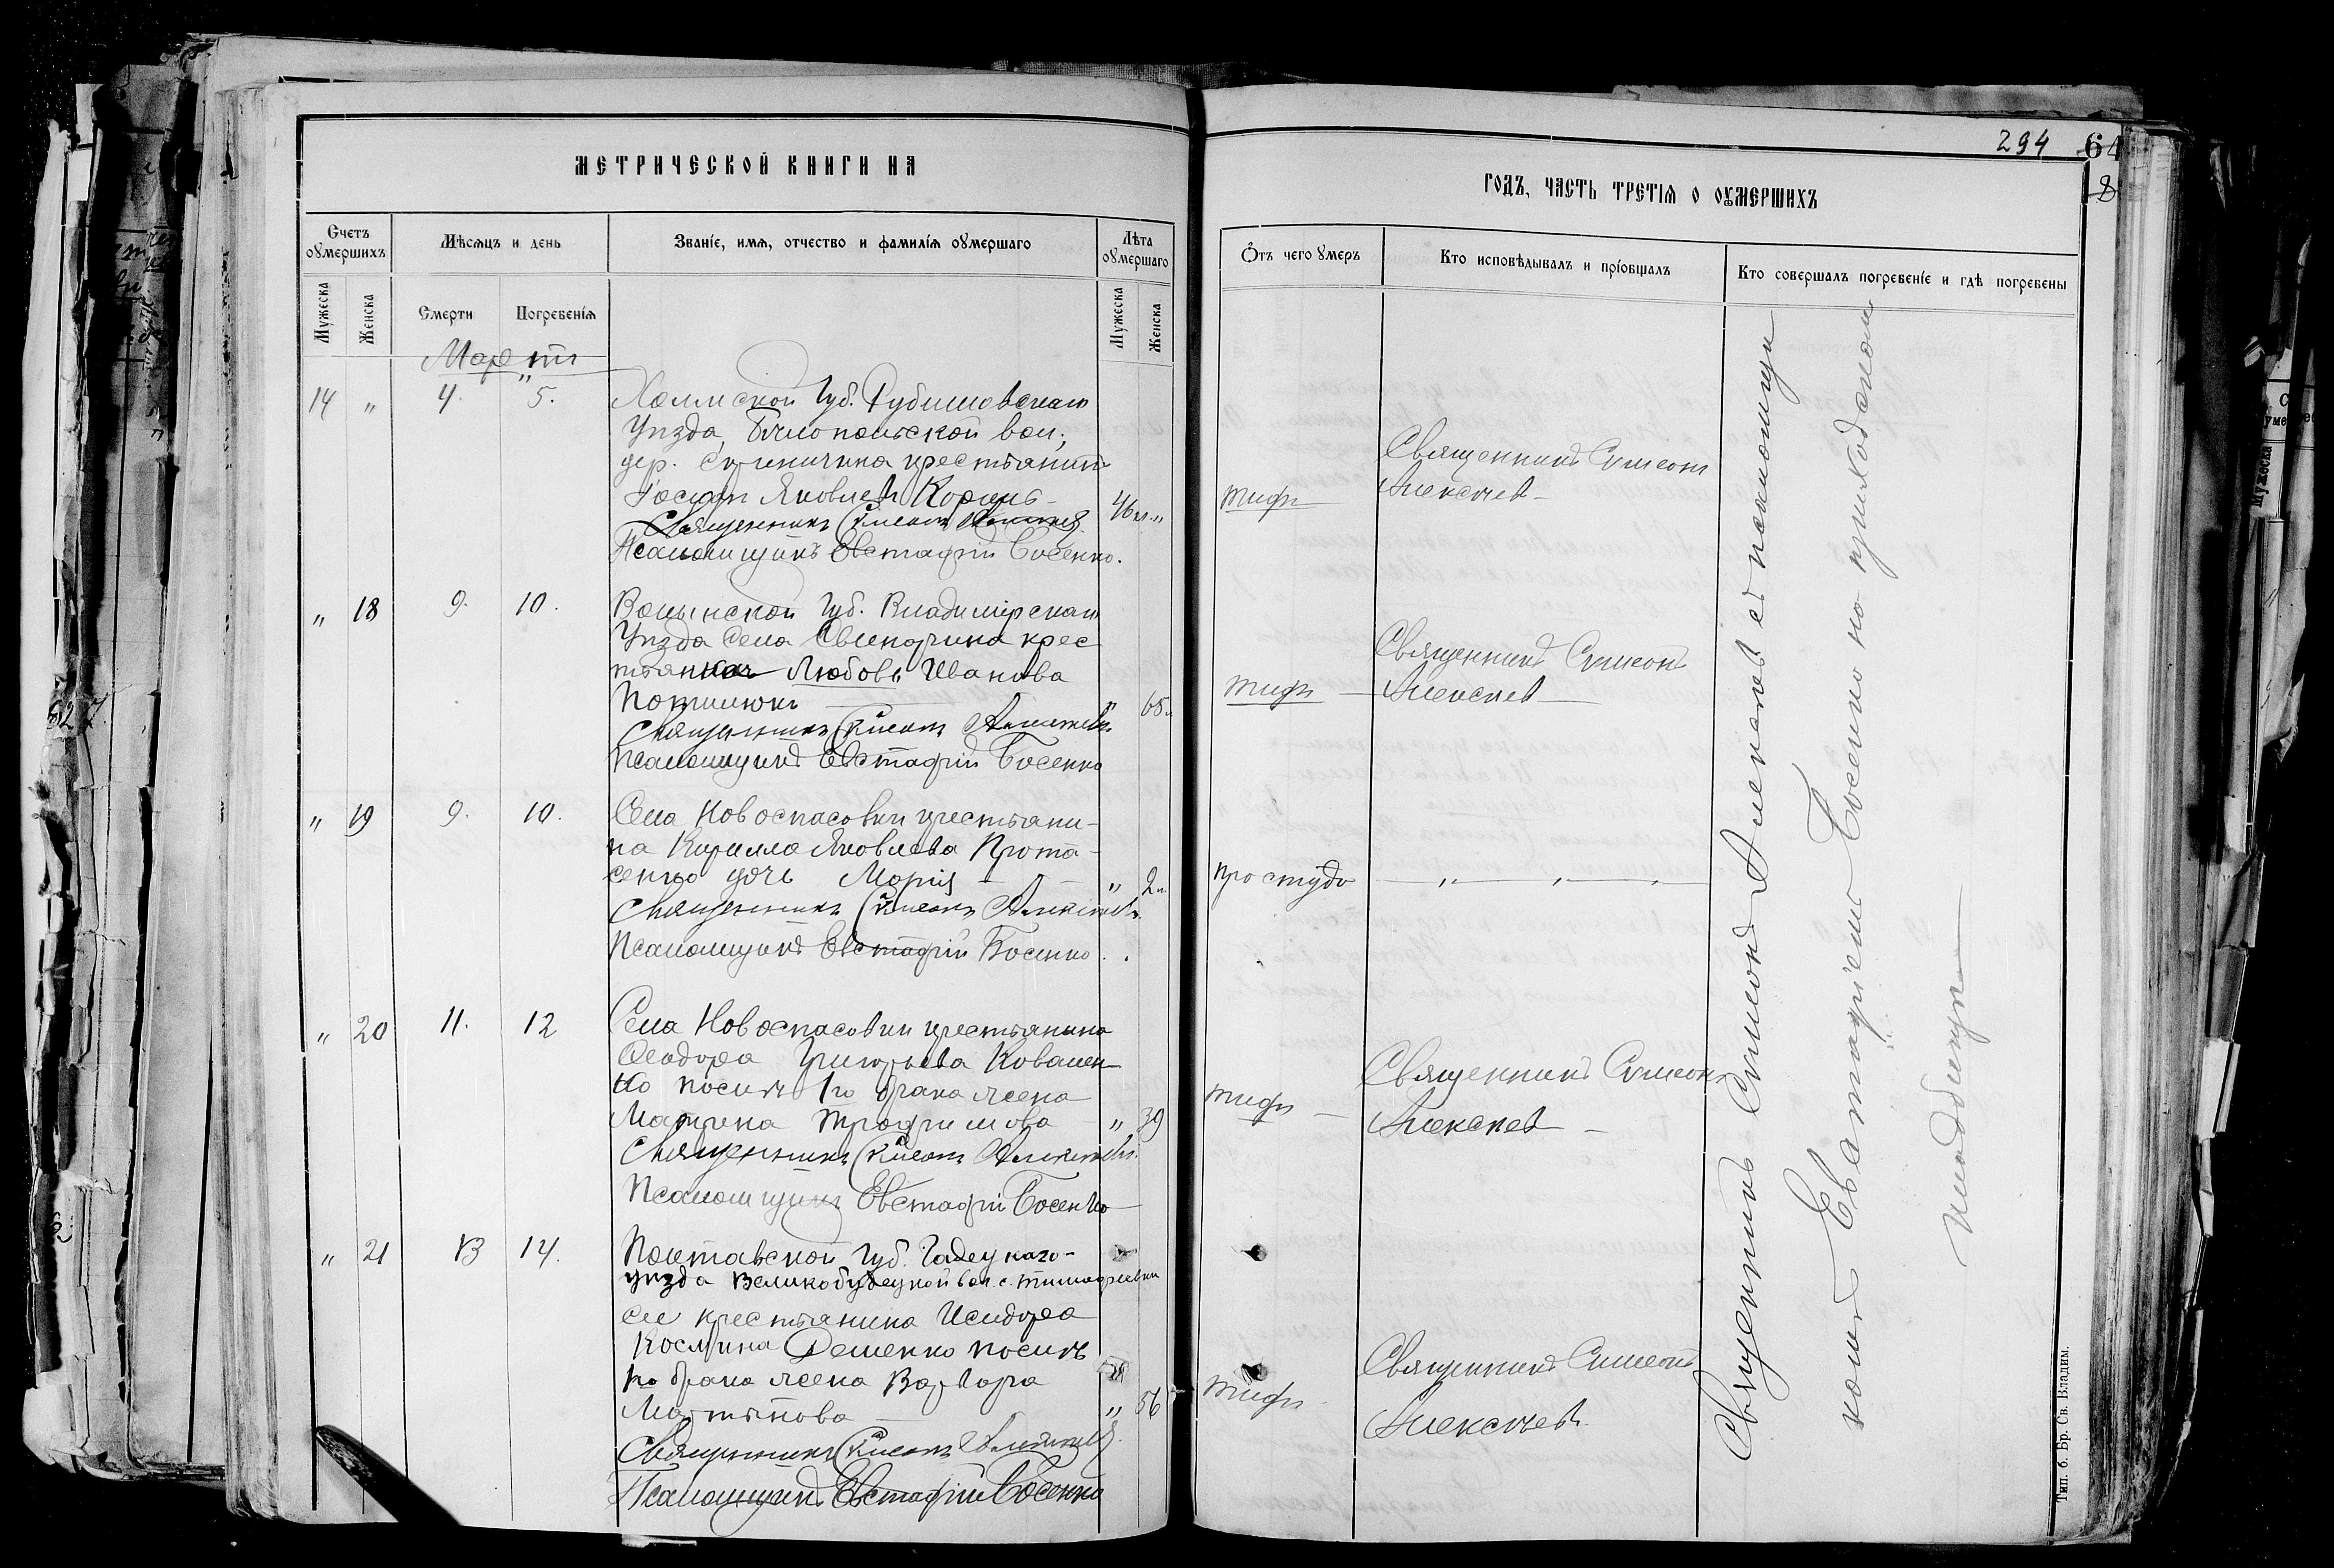 МЕТРИЧЕСКОЙ КНИГИ НА
Счетъ оумершихъ
Мѣсяцъ и день
Званіе, имя, отчество и фамилія оумершаго
Лѣта оумершаго
Мужеска
Женска
Смерти
Погребенія
Мужеска
Женска
Мартъ
14 " 4. 5.
Холмской Губ. Грубешовскаго
Уѣзда, Бѣлопольской вол.,
дер. крестьянинъ
Іосифъ Яковлевъ Король
46 л. "
Священникъ Симеонъ Алексѣевъ
Псаломщикъ Евстафій Босенко.
" 18 9. 10.
Волынской Губ. Владимірскаго
Уѣзда Села крес
тьянка Любовь Иванова
" 65 л.
Священникъ Симеонъ Алексѣевъ
Псаломщикъ Евстафій Босенко
" 19 9. 10.
Села Новоспасовки крестьяни-
на Кирилла Яковлева Прота-
сенко дочь Марія
" 2 л.
Священникъ Симеонъ Алексѣевъ.
Псаломщикъ Евстафій Босенко.
" 20 11. 12
Села Новоспасовки крестьянина
Феодора Григорьева Ковален-
ко посилъ 1го брака жена
Матрена Трофимова
" 39
Священникъ Симеонъ Алексѣевъ.
Псаломщикъ Евстафій Босенко
" 21 13 14.
Полтавской Губ. Гадецкаго
уѣзда Великобудецкой вол. с. Тимофеевки
крестьянина Исидора
Космина Деменко посилъ
1го брака жена Варвара
Мартынова
" 56
Священникъ Симеонъ Алексѣевъ.
Псаломщикъ Евстафій Босенко
294
64
8
ГОДЪ, ЧАСТЬ ТРЕТІЯ О ОУМЕРШИХЪ
Отъ чего умеръ
Кто исповѣдывалъ и пріобщалъ
Кто совершалъ погребеніе и гдѣ погребены
тифъ
Священникъ Симеонъ
Алексѣевъ
тифъ
Священникъ Симеонъ
Алексѣевъ
простуда
" " "
тифъ
Священникъ Симеонъ
Алексѣевъ
тифъ
Священникъ Симеонъ
Алексѣевъ.
Священникъ Симеонъ Алексѣевъ съ псаломщи
комъ Евстафіемъ Босенко на приходскомъ
кладбищѣ
Тип. б. Бр. Св. Владим.